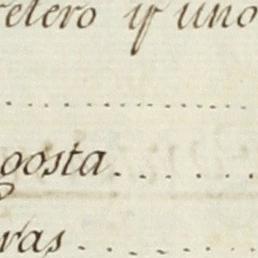 retero y uno
..........
gosta......
vas......